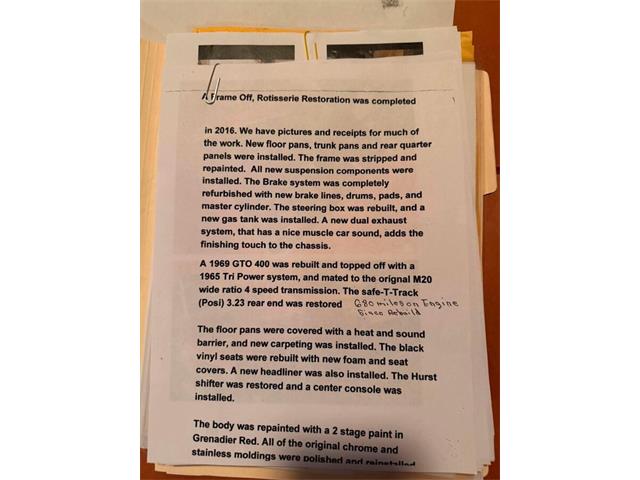 A Frame Off, Rotisserie Restoration was completed
in 2016. We have pictures and receipts for much of
the work. New floor pans, trunk pans and rear quarter
panels were installed. The frame was stripped and
repainted. All new suspension components were
installed. The Brake system was completely
refurbished with new brake lines, drums, pads, and
master cylinder. The steering box was rebuilt, and a
new gas tank was installed. A new dual exhaust
system, that has a nice muscle car sound, adds the
finishing touch to the chassis.
A 1969 GTO 400 was rebuilt and topped off with a
1965 Tri Power system, and mated to the orignal M20
wide ratio 4 speed transmission. The safe-T-Track
(Posi) 3.23 rear end was restored 680 miles on Engine
Since Rebuild
The floor pans were covered with a heat and sound
barrier, and new carpeting was installed. The black
vinyl seats were rebuilt with new foam and seat
covers. A new headliner was also installed. The Hurst
shifter was restored and a center console was
installed.
The body was repainted with a 2 stage paint in
Grenadier Red. All of the original chrome and
stainless moldings were polished and reinstalled